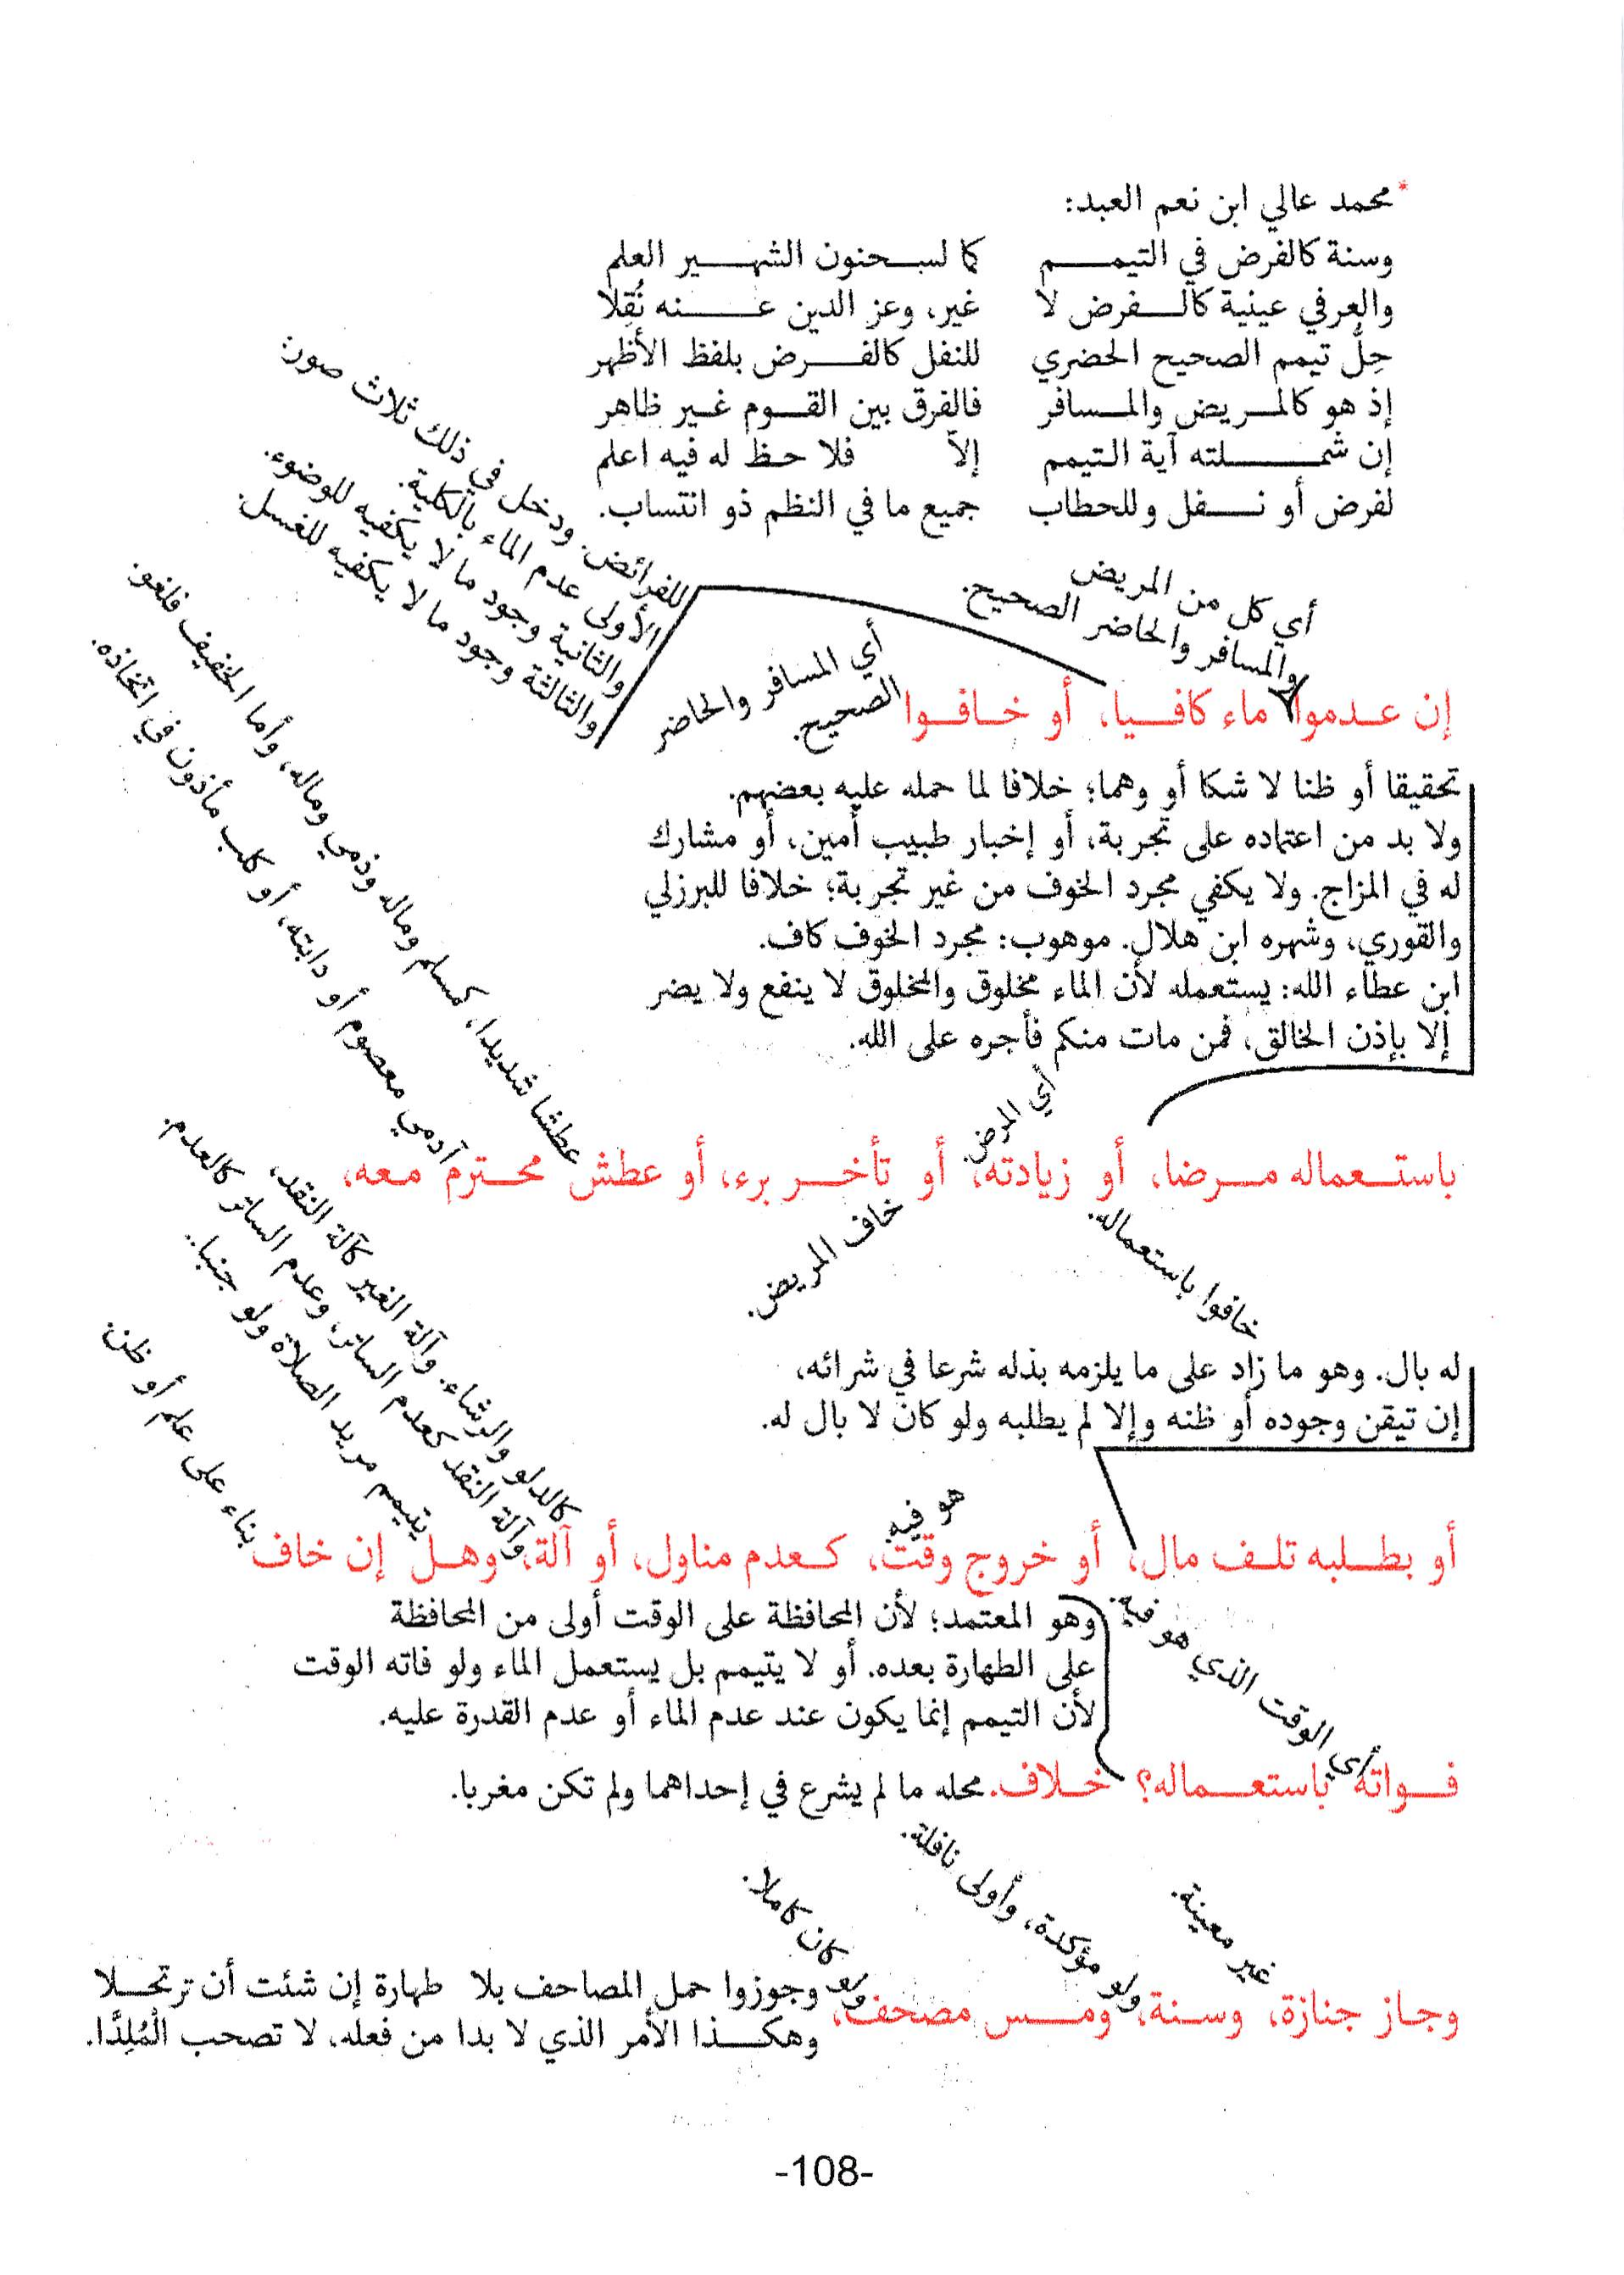 *محمد عالي ابن نعم العبد:
وسنة كالفرض في التيمم كما لسحنون الشهير العلم
والعرفي عينية كالفرض لا غير، وعز الدين عنه نُقِلا
حِلُّ تيمم الصحيح الحضري للنفل كالفرض بلفظ الأظهر
إذ هو كالمريض والمسافر فالفرق بين القوم غير ظاهر
إن شملته آية التيمم إلاّ فلا حظ له فيه اعلم
لفرض أو نفل وللحطاب جميع ما في النظم ذو انتساب.
أي كل من المريض
والمسافر والحاضر الصحيح.
للفرائض. ودخل في ذلك ثلاث صور:
الأولى عدم الماء بالكلية.
والثانية وجود ما لا يكفيه للوضوء.
والثالثة وجود ما لا يكفيه للغسل.
أي المسافر والحاضر
الصحيح.
إن عدموا ماء كافيا، أو خافوا
تحقيقا أو ظنا لا شكا أو وهما؛ خلافا لما حمله عليه بعضهم.
ولا بد من اعتماده على تجربة، أو إخبار طبيب أمين، أو مشارك
له في المزاج. ولا يكفي مجرد الخوف من غير تجربة؛ خلافا للبرزلي
والقوري، وشهره ابن هلال. موهوب: مجرد الخوف كاف.
ابن عطاء الله: يستعمله لأن الماء مخلوق والمخلوق لا ينفع ولا يضر
إلا بإذن الخالق، فمن مات منكم فأجره على الله.
أي المرض.
عطشا شديدا، كمسلم وماله وذمي وماله، وأما الخفيف فلغو.
آدمي معصوم أو دابته، أو كلب مأذون في اتخاذه.
باستعماله مرضا، أو زيادته، أو تأخر برء، أو عطش محترم معه،
خافوا باستعماله.
خاف المريض.
له بال. وهو ما زاد على ما يلزمه بذله شرعا في شرائه،
إن تيقن وجوده أو ظنه وإلا لم يطلبه ولو كان لا بال له.
هو فيه.
كالدلو والرشاء. وآلة الغير كآلة النقد،
وآلة النقد كعدم الساتر، وعدم الساتر كالعدم.
يتيمم مريد الصلاة ولو جنبا..
بناء على علم أو ظن.
أو بطلبه تلف مال، أو خروج وقت، كعدم مناول، أو آلة، وهل إن خاف
وهو المعتمد؛ لأن المحافظة على الوقت أولى من المحافظة
على الطهارة بعده. أو لا يتيمم بل يستعمل الماء ولو فاته الوقت
لأن التيمم إنما يكون عند عدم الماء أو عدم القدرة عليه.
أي الوقت الذي هو فيه.
فواته باستعماله؟ خلاف. محله ما لم يشرع في إحداهما ولم تكن مغربا.
غير معينة.
ولو مؤكدة، وأولى نافلة.
ولو كان كاملا.
وجاز جنازة، وسنة، ومس مصحف، وجوزوا حمل المصاحف بلا طهارة إن شئت أن ترتحلا
وهكذا الأمر الذي لا بدا من فعله، لا تصحب الْمُلِدَّا.
-108-